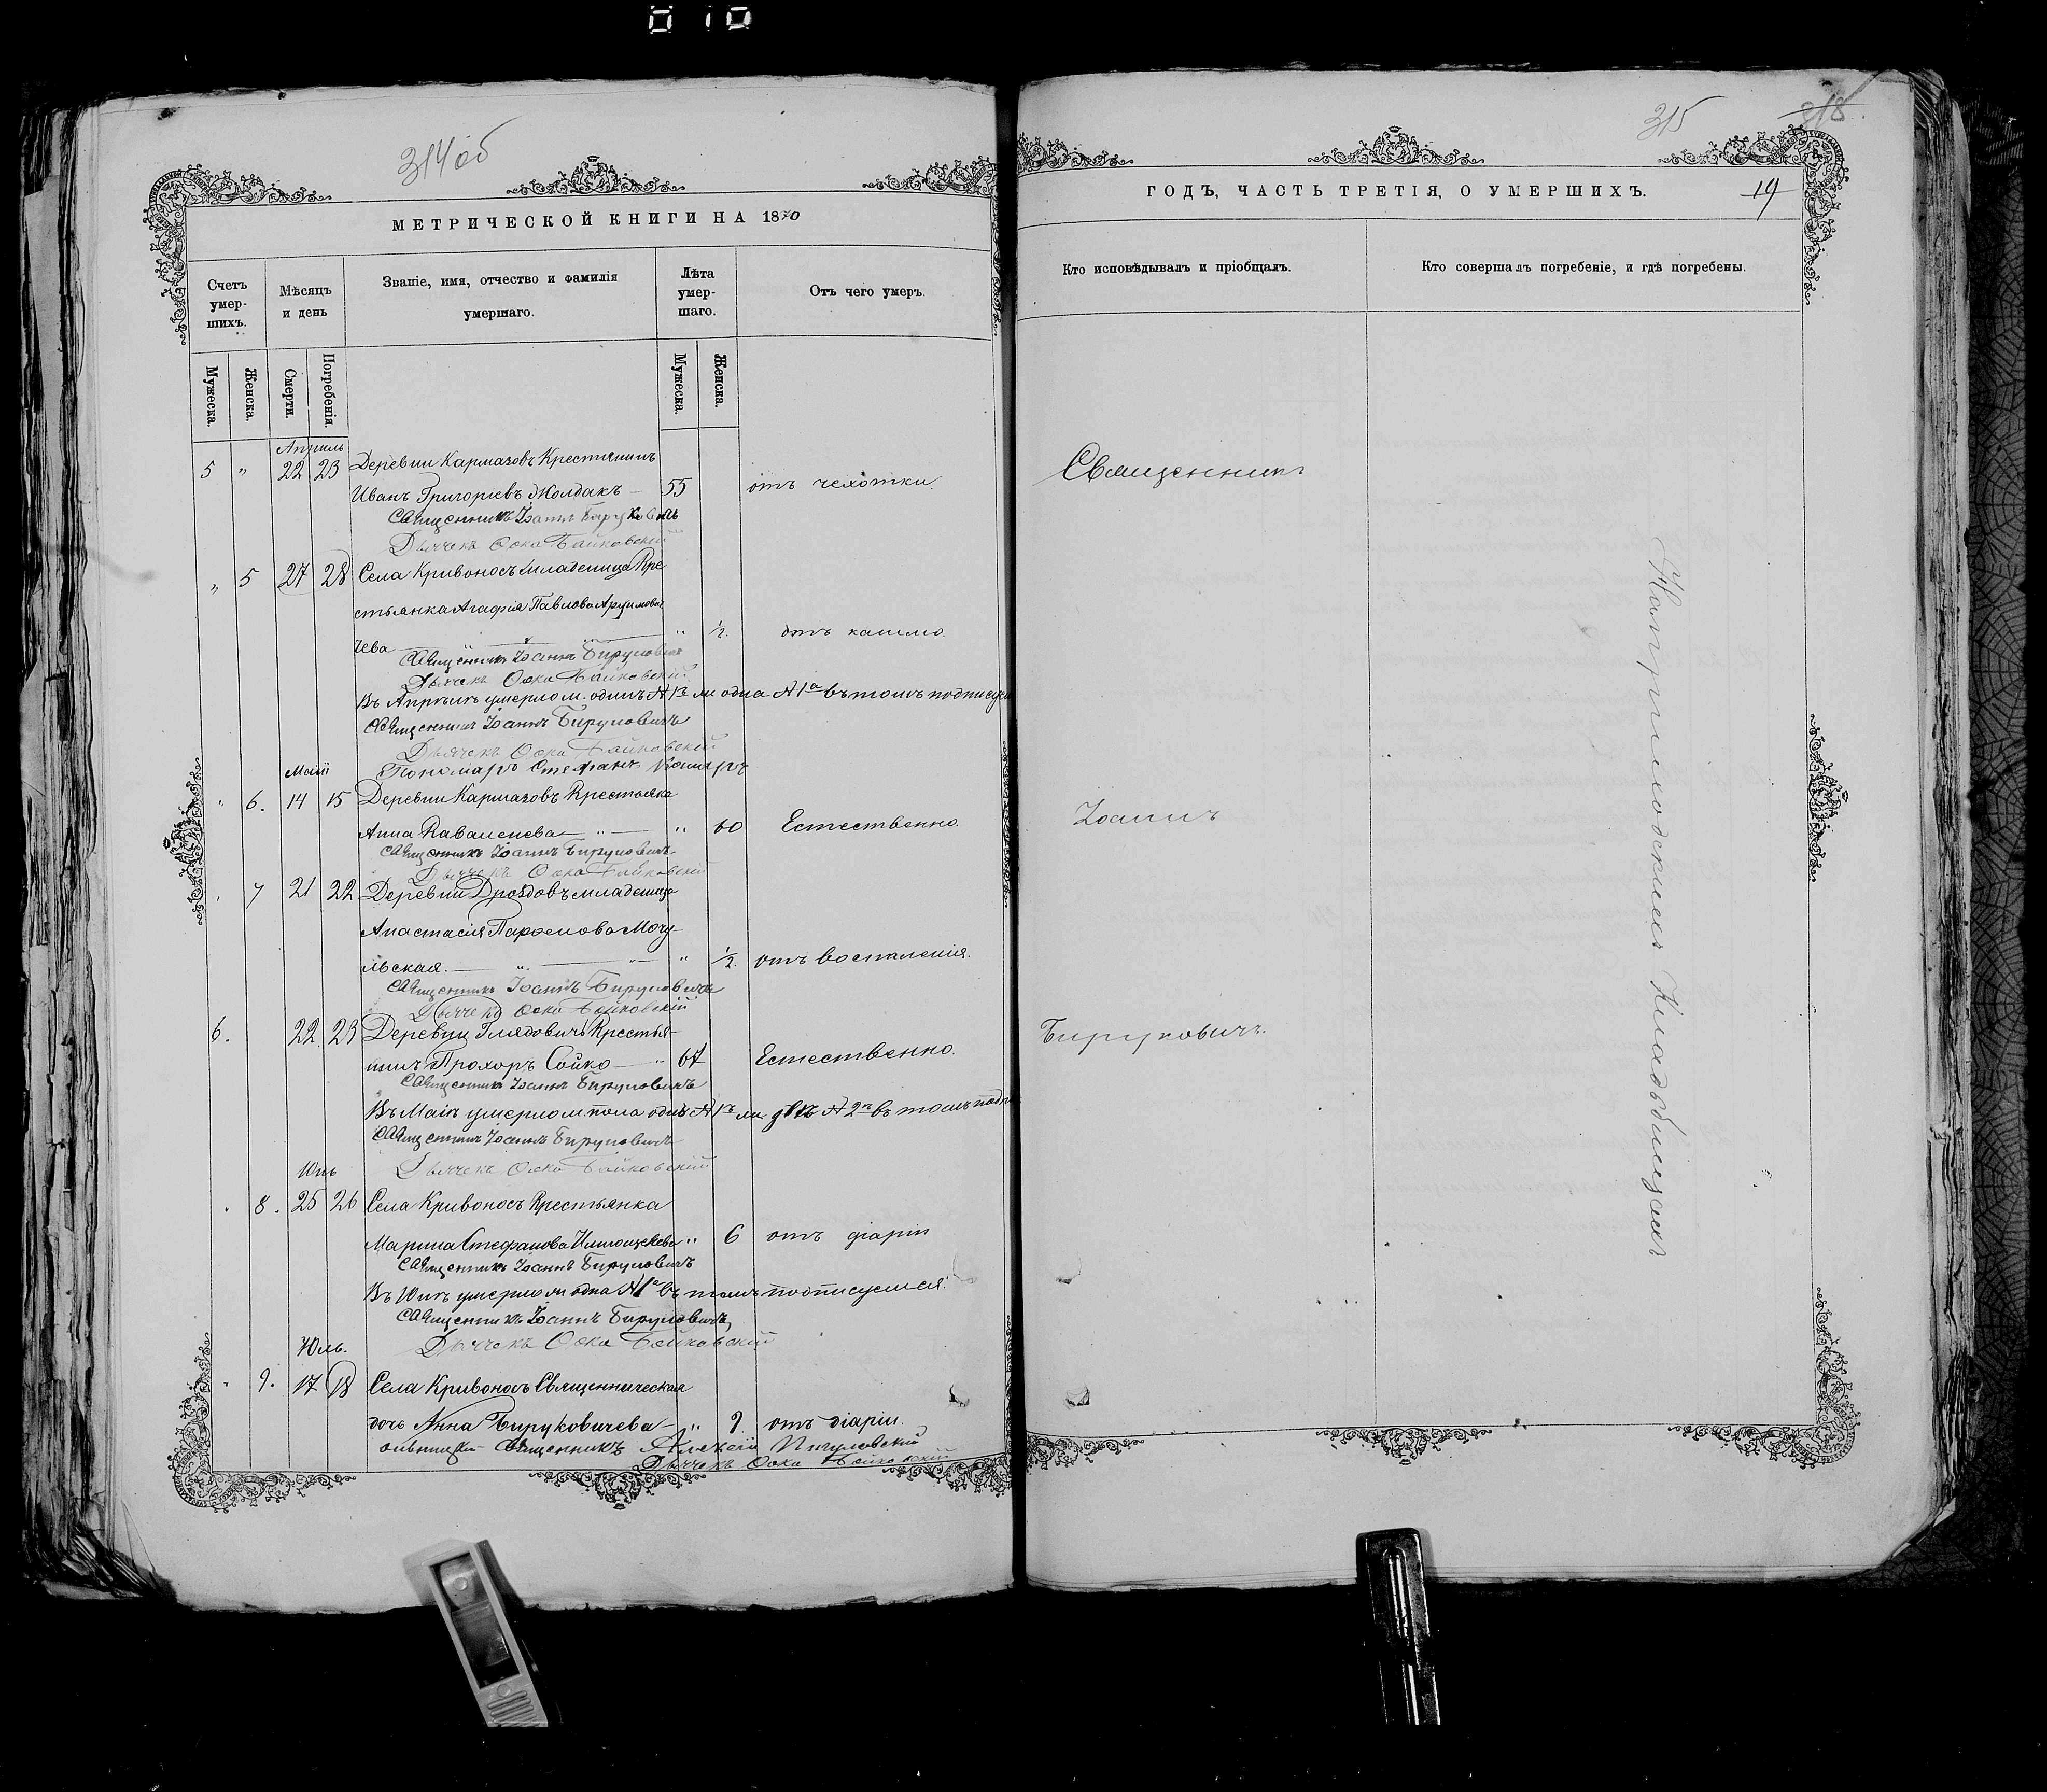 010
314 об
МЕТРИЧЕСКОЙ КНИГИ НА 1870
Счетъ умер-шихъ.
Мѣсяцъ и день
Званіе, имя, отчество и фамилія умершаго.
Лѣта умер-шаго.
Отъ чего умеръ.
Мужеска. Женска. Смерти. Погребенія. Мужеска. Женска.
Апрпль
5 " 22 23 Деревни Кармазовъ Крестянинъ
Иванъ Григоріевъ Жолдакъ — 55 отъ чехотки.
Священникъ Іоаннъ Бируковичъ
Дьячекъ Оска Байковскій
" 5 27 28 Села Кривоносъ младеница Кре
стьянка Агафія Павлова
чева " 1/2. отъ кашлю.
Священникъ Іоаннъ Бируковичъ
Дьячекъ Оска Байковскій
Въ Апрѣлѣ умерло м. одинъ №1ъ ж одна №1а въ томъ подписуем
Священникъ Іоаннъ Бируковичъ
Дьячекъ Оска Байковскій
Пономаръ Стефанъ
Маій
" 6. 14 15 Деревни Кармазовъ Крестьяка
Анна — " — " 60 Естественно.
Священникъ Іоаннъ Бируковичъ
Дьячекъ Оска Байковскій
" 7 21 22 Деревни Дроздовъ младеница
Анастасія Парфенова Могу-
льская. — " — " — " 1/2. отъ воспаленія.
Священникъ Іоаннъ Бируковичъ
Дьячекъ Оска Байковскій
6. 22. 23 Деревни Глядовичъ Крестья-
нинъ Прохоръ Сойко — " 67 Естественно.
Священникъ Іоаннъ Бируковичъ
Въ Маіѣ умерло м пола одинъ №1ъ ж двѣ №2ъ въ томъ подп
Священникъ Іоаннъ Бируковичъ
Дьячекъ Оска Байковскій
Юнь
" 8. 25 26 Села Кривоносъ Крестьянка
Марина Стефанова " 6 отъ діаріи
Священникъ Іоаннъ Бируковичъ
Въ Юнѣ умерло ж одна №1а въ томъ подписуемся.
Священникъ Іоаннъ Бируковичъ
Дьячекъ Оска Байковскій
Юль.
" 9. 17 18 Села Кривоносъ Священническая
дочь Анна Бируковичева — " 9. отъ діаріи.
Священникъ Алексій Пигулевскій
Дьячекъ Оска Байковскій
315
318
ГОДЪ, ЧАСТЬ ТРЕТІЯ, О УМЕРШИХЪ.
19
Кто исповѣдывалъ и пріобщалъ.
Кто совершалъ погребеніе, и гдѣ погребены.
Священникъ
Іоаннъ
Бируковичъ.
На приходскихъ Кладбищахъ